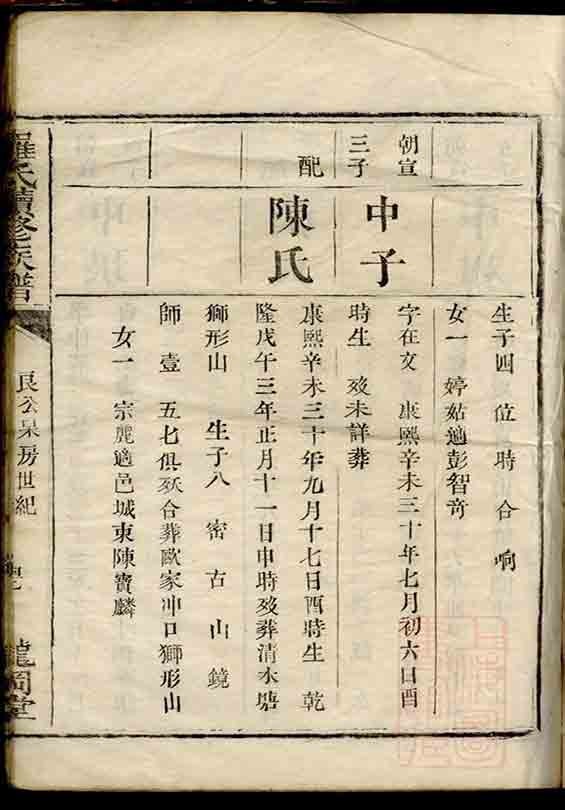 生子四 位 時 合 响
女一 婷姑適彭智奇
朝宣
三子
中子
字在文 康熙辛未三十年七月初六日酉
時生 歿未詳葬
配
陳氏
康熙辛未三十年九月十七日酉時生 乾
隆戊午三年正月十一日申時歿葬清水塘
獅形山 生子八 密 古 山 鏡
師 壹 五 七俱殀合葬歐家冲口獅形山
女一 宗麗適邑城東陳寶麟
羅氏續修族譜
良公杲房世紀
龍岡堂